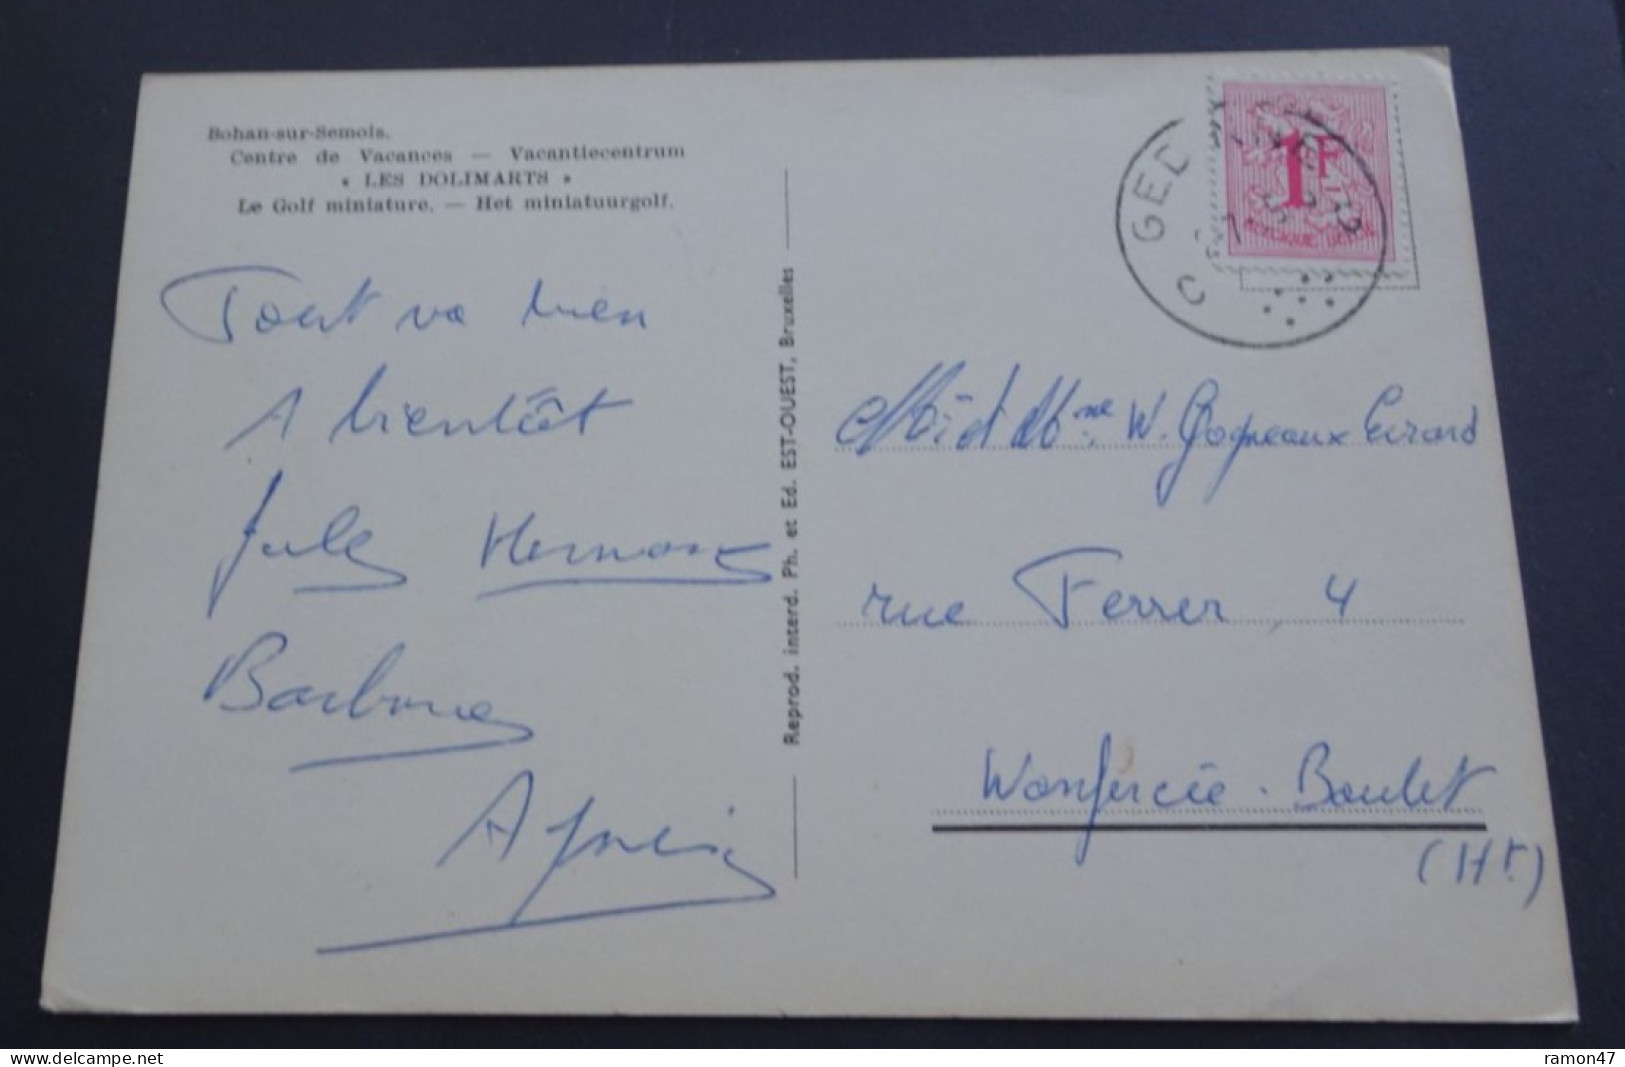 Bohan-sur-Semois.
Centre de Vacances — Vacantiecentrum
« LES DOLIMARTS »
Le Golf miniature. — Het miniatuurgolf.
Tout va bien
A bientôt
Jules
Barbara
Reprod. interd. Ph. et Ed. EST-OUEST, Bruxelles
GED
1F
BELGIQUE BELGIE
Mme W. Gogneaux Evrard
rue Ferrer, 4
Wanfercée-Baulet
(Ht.)
delcampe.net
ramon47